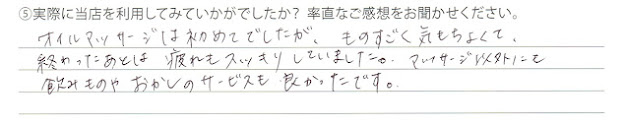 ⑤実際に当店を利用してみていかがでしたか? 率直なご感想をお聞かせください。
オイルマッサージは初めてでしたが、ものすごく気もちよくて、
終わったあとは 疲れもスッキリしていました。マッサージ以外にも
飲みものや おかしのサービスも 良かったです。